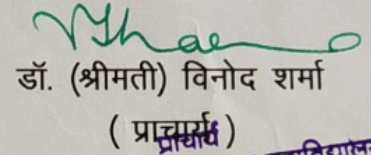 डॉ. (श्रीमती) विनोद शर्मा
( प्राचार्य )
प्राचार्य